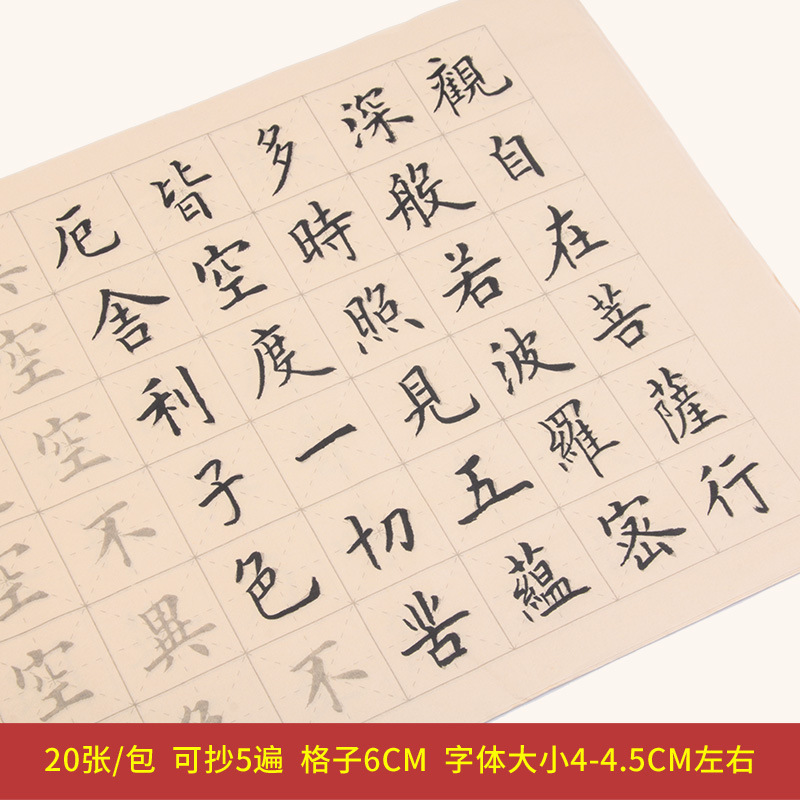 觀自在菩薩行
深般若波羅密
多時照見五蘊
皆空度一切苦
厄舍利子色不
異空空不異色
空空
20张/包 可抄5遍 格子6CM 字体大小4-4.5CM左右